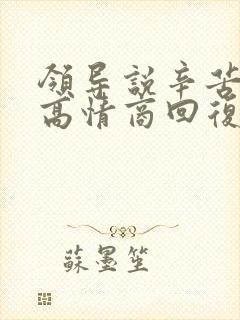 領导説辛苦
高情商回復
蘇墨笙